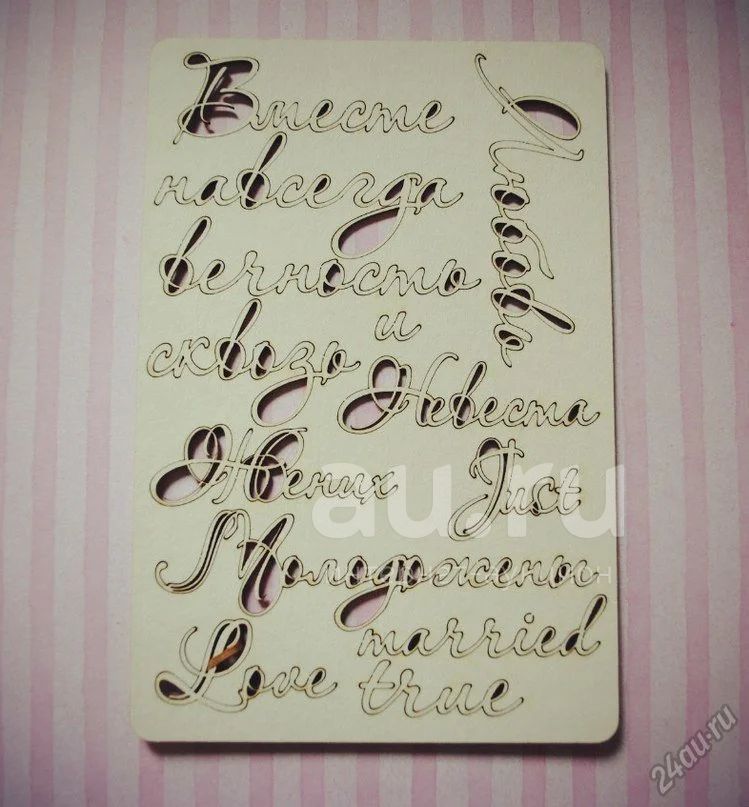 Вместе
Любовь
навсегда
вечность
и
сквозь
Невеста
Жених
Just
Молодожены
married
Love
true
au.ru
24au.ru